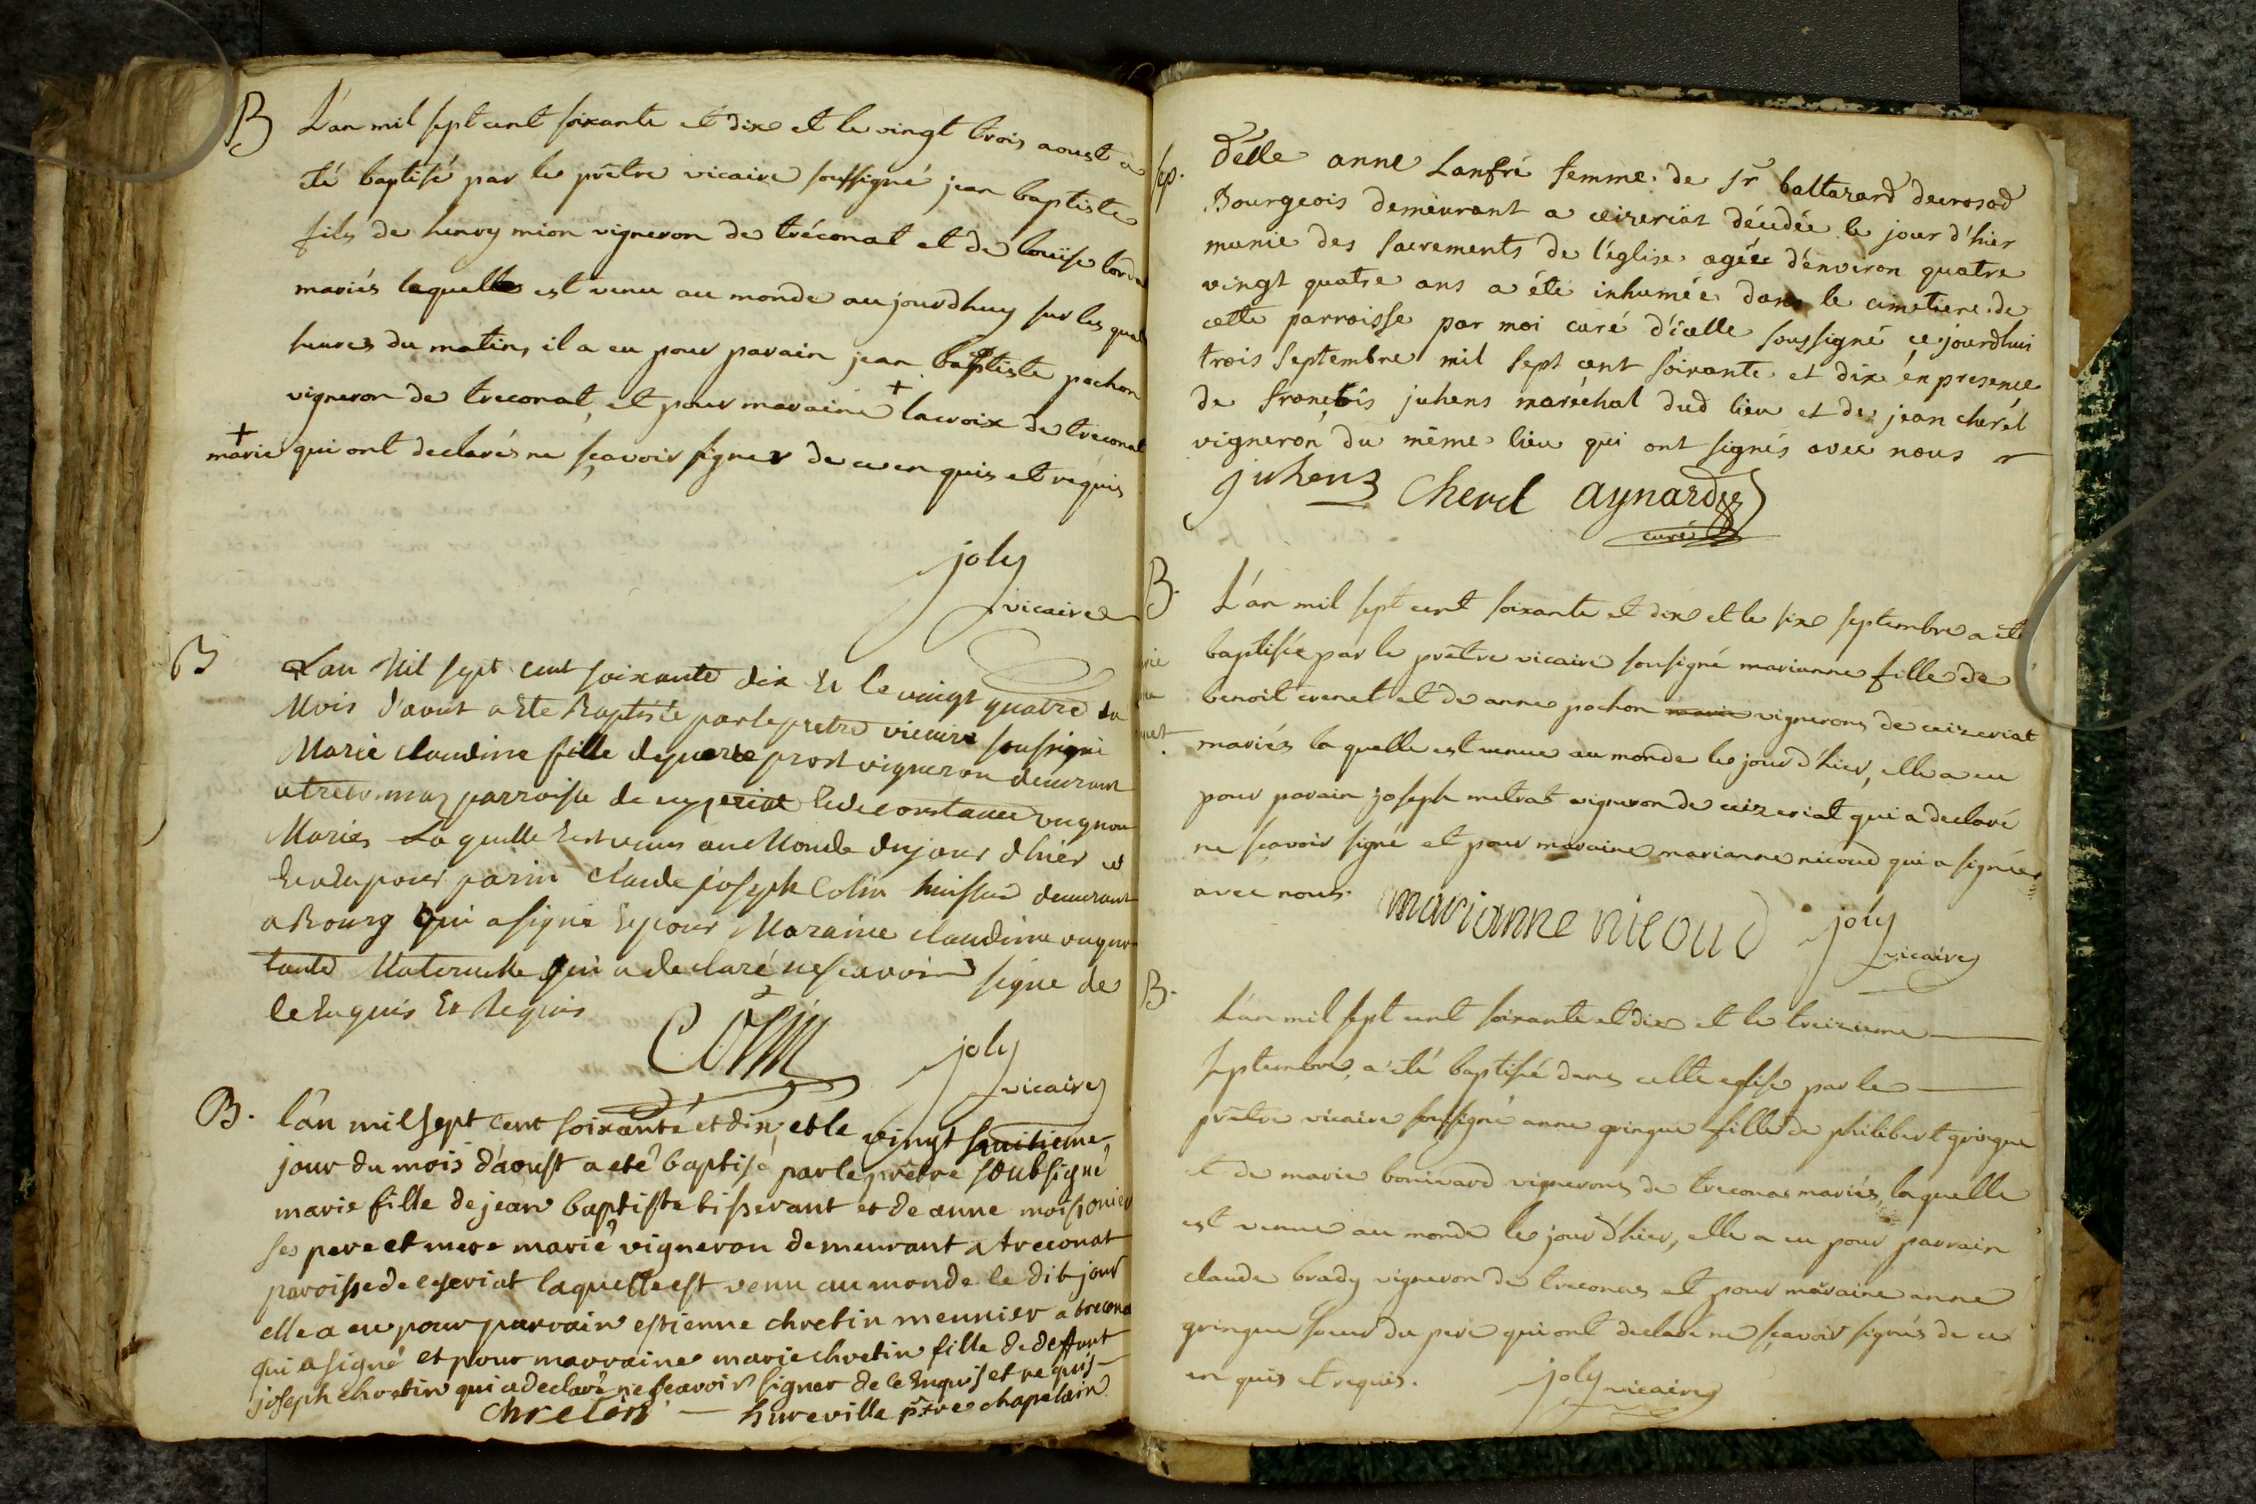 B
L'an mil sept cent soixante et dix et le vingt trois aoust a
été baptisé par le prêtre vicaire soussigné jean baptiste
fils de henry mion vigneron de tréconat et de louïse
mariés laquelle est venu au monde aujourdhuy sur les
heures du matin, il a eu pour parain jean baptiste pochon
vigneron de treconat, et pour maraine + lacroix de treconat
+ marie qui ont declarés ne sçavoir signer de ce enquis et requis
joly
vicaire
B
L'an Mil sept cent soixante dix Et le vingt quatre du
Mois d'aout a Ete Baptisée par le pretre vicaire soussigné
Marie claudine fille de pierre prost vigneron demeurant
a parroisse de Et de constance
Mariés Laquelle Est venue au Monde du jour d'hier
Et a Eu pour parin claude joseph Colin huissier demeurant
a Bourg qui a signé Et pour Maraine claudine
tante Maternelle qui a declaré ne scavoir signe de
ce Enquis Et Requis
Colin
joly
vicaire
B.
l'an mil sept cent soixante et dix, et le vingt huitieme
jour du mois d'aoust a eté baptisé par le prêtre soubsigné
marie fille de jean baptiste tisserant et de anne
ses pere et mere marié vigneron demeurant a treconat
paroisse de ceseriat laquelle est venu au monde le dit jour
elle a eu pour parrain estienne chretin meunier a trecona
qui a signé et pour marraine marie chretin fille de deffunt
joseph chretin qui a declaré ne scavoir signer de ce Enquis et requis
chretin — hureville ptre chapelain
sep.
delle anne Lanfré femme de sr baltazard decrosod
Bourgeois demeurant a ceizeriat décédée le jour d'hier
munie des sacrements de l'église agée d'environ quatre
vingt quatre ans a été inhumée dans le cimetiere de
cette parroisse par moi curé d'icelle soussigné ce jourdhui
trois septembre mil sept cent soixante et dix en presence
de françois juhens maréchal dud lieu et de jean cherel
vigneron du même lieu qui ont signés avec nous
juhens cherel aynard
curé
B.
L'an mil sept cent soixante et dix et le six septembre a été
baptisée par le prêtre vicaire sousigné marianne fille de
benoit evenet et de anne pochon vignerons de ceizeriat
mariés la quelle est venue au monde le jour d'hier, elle a eu
pour parain joseph metrat vigneron de ceizeriat qui a declaré
ne sçavoir signé et pour maraine marianne nicoud qui a signée
avec nous.
marianne nicoud
joly
vicaire
B.
L'an mil sept cent soixante et dix et le treizieme
septembre, a été baptisée dans cette eglise par le
prêtre vicaire sousigné anne gringue fille de philibert gringue
et de marie bonivard vignerons de treconas mariés, laquelle
est venue au monde le jour d'hier, elle a eu pour parrain
claude brady vigneron de treconas et pour maraine anne
gringue soeur du pere qui ont declaré ne sçavoir signés de ce
en quis et requis.
joly vicaire